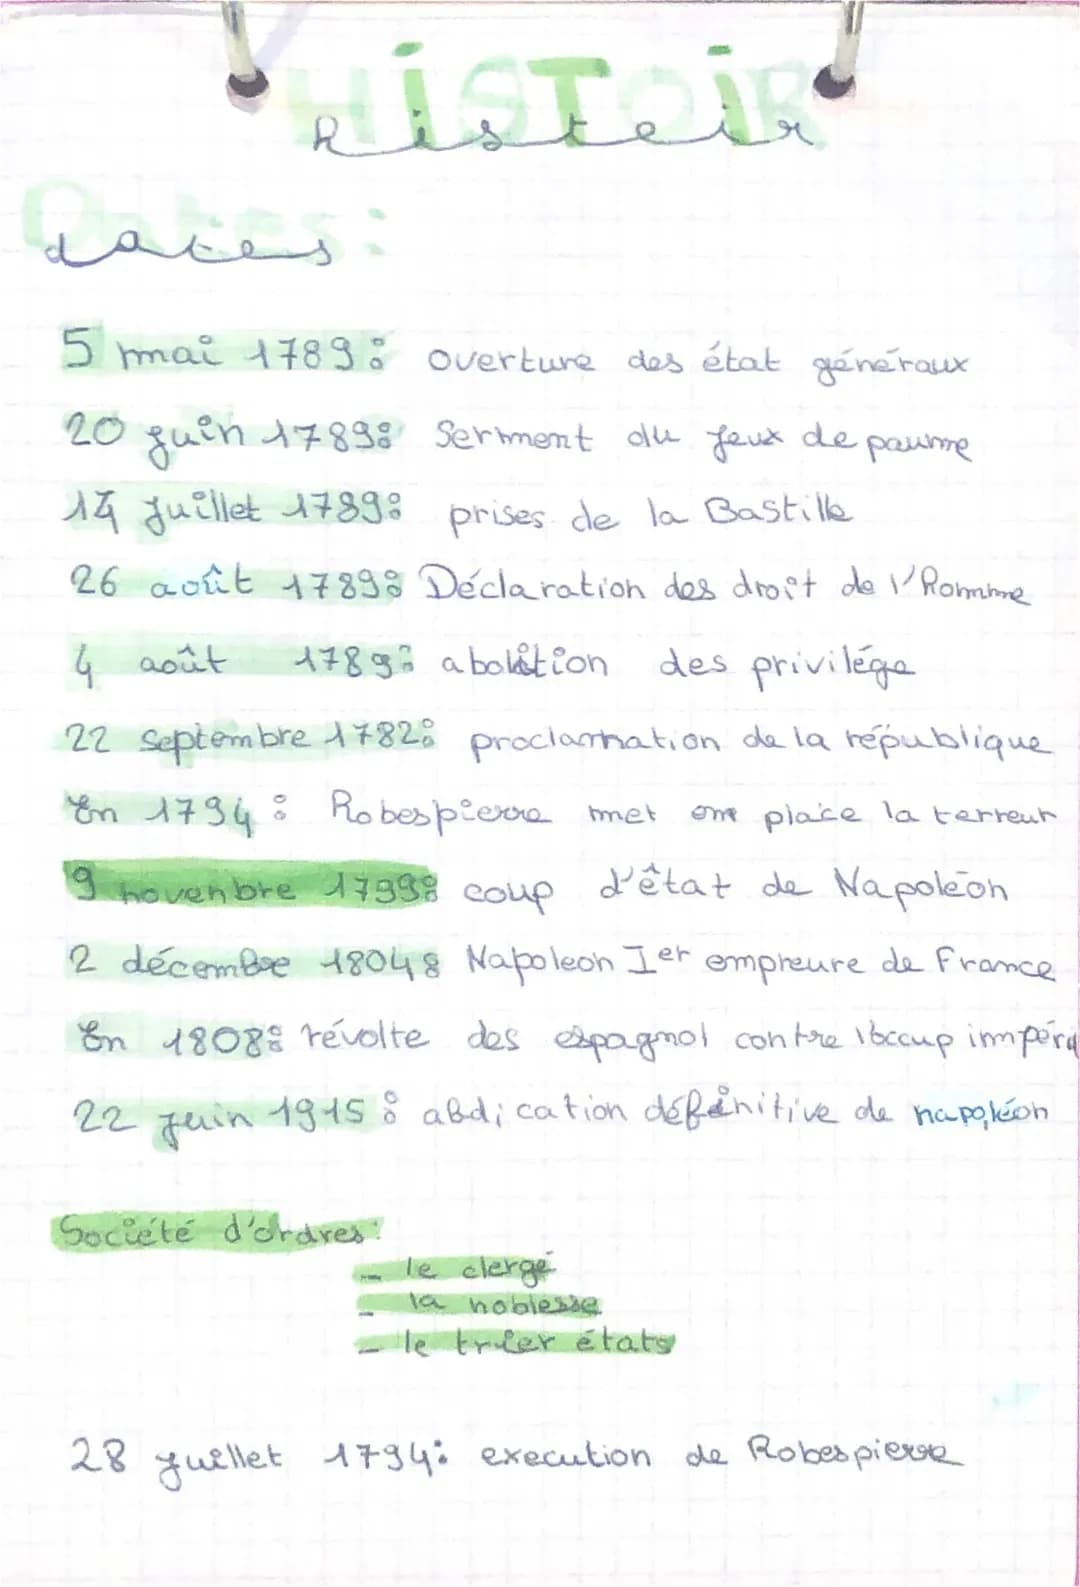 HiSToiR
histoir
Dates:
dates
5 mai 1789: overture des état généraux
20 juin 1789: Serment du jeux de paume
14 juillet 1789: prises de la Bastille
26 août 1789: Déclaration des droit de l'Homme
4 août 1789: abolition des privilége
22 septembre 1782: proclamation de la république
En 1794: Robespierre met en place la terreur
9 novenbre 1799: coup d'êtat de Napoléon
2 décembre 1804: Napoleon Ier empreure de France
En 1808: révolte des espagnol contre impéra
22 juin 1915: abdication définitive de napoléon
Société d'ordres:
- le clergé
- la noblesse
- le trier états
28 juillet 1794: execution de Robespierre